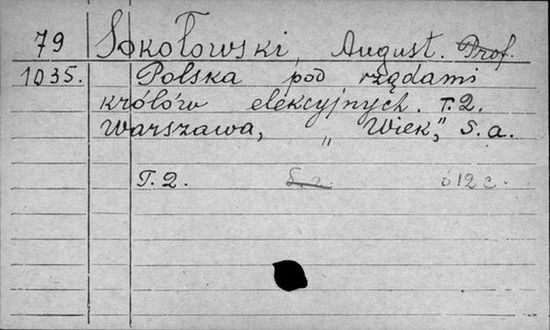 79 Sokołowski, August. Prof.
1035. Polska pod rządami
królów elekcyjnych. T.2.
Warszawa, „Wiek”, S.a.
T.2. S.a. 612 c.